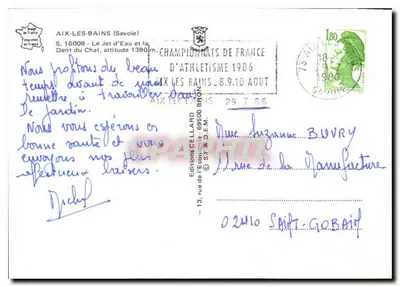 AIX-LES-BAINS (Savoie)
S. 16009 - Le Jet d'Eau et la
Dent du Chat, altitude 1390m
Nous profitons du beau
temps avant de nous
remettre à travailler dans
le jardin.
Nous vous espérons en
bonne santé et vous
envoyons nos plus
affectueux baisers.
Michel
CHAMPIONNATS DE FRANCE
D'ATHLETISME 1986
AIX LES BAINS. 8.9.10 AOUT
AIX LES BAINS 29.7.86
Editions CELLARD
13, rue de l'Economie 69500 BRON
© S.I.A.D.E.M.
1,80
18
1986
SAVOIE
Mme Suzanne BUVRY
11 rue de la Manufacture
02410 SAINT-GOBAIN